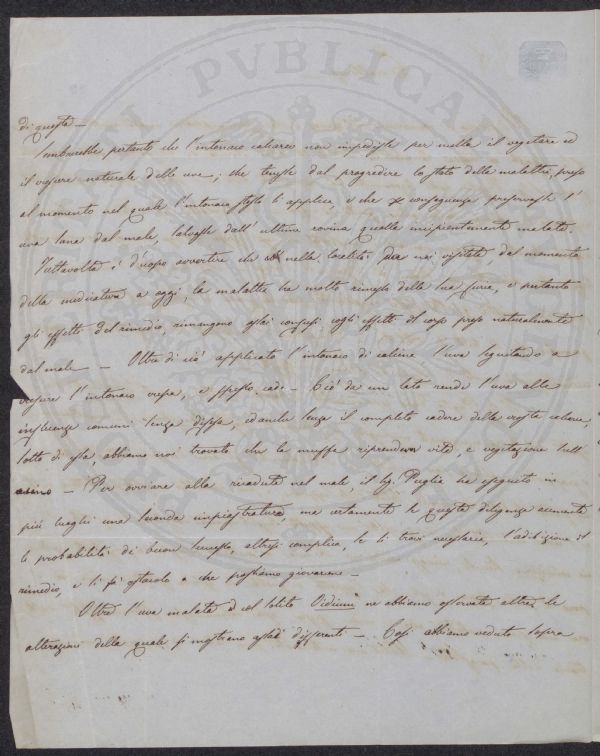 di questa —
Sembrerebbe pertanto che l'intonaco calcareo non impedisse per nulla il vegetare ed
il crescere naturale delle uve; che tenesse dal progredire lo stato della malattia, preso
al momento nel quale l'intonaco stesso si applica, e che per conseguenza preservasse l'
uva sana dal male, salvasse dall'ultima rovina quella incipientemente malata.
Tuttavolta è d'uopo avvertire che nelle località da noi visitate dal momento
della medicatura a oggi, la malattia ha molto rimesso della sua furia, e pertanto
gli effetti del rimedio, rimangono assai confusi cogli effetti del corso preso naturalmente
dal male — Oltre di ciò applicato l'intonaco di calcina l'uva seguitando a
crescere l'intonaco crepa, e spesso cade — Ciò da un lato rende l'uva alle
influenze comuni senza difesa, ed anche senza il completo cadere della crosta calcarea,
sotto di essa, abbiamo noi trovato che la muffa riprendeva vita, e vegetazione sull'
acino — Per ovviare alla ricaduta nel male, il Sig. Puglia ha eseguito in
più luoghi una seconda impiastratura, ma certamente se questa diligenza aumenta
le probabilità di buon successo, altresì complica, se si trovi necessaria, l'adizione il
rimedio, e si fa ostacolo a che possiamo giovarcene —
Oltre l'uva malata col solito Oidium ne abbiamo osservata altra, le
alterazioni della quale si mostrano assai differenti — Così abbiamo veduto sopra